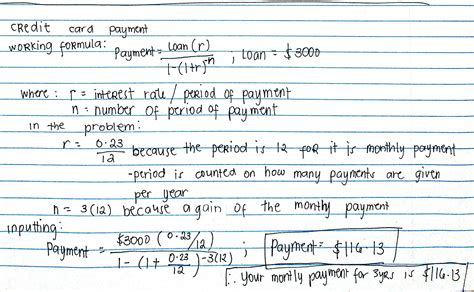 CRedit card payment
WORKing formula: Payment = Loan (r) / 1-(1+r)^-n ; Loan = $3000
where : r = interest rate / period of payment
n = number of period of payment
in the problem:
r = 0.23 / 12 because the period is 12 foR it is monthly payment
-period is counted on how many payments are given
per year
n = 3(12) because again of the monthy payment
inputting:
Payment = $3000 ( 0.23/12 ) / 1- (1+ 0.23/12 )^-3(12) ; Payment = $116.13
∴ Your montly payment for 3yrs is $116.13